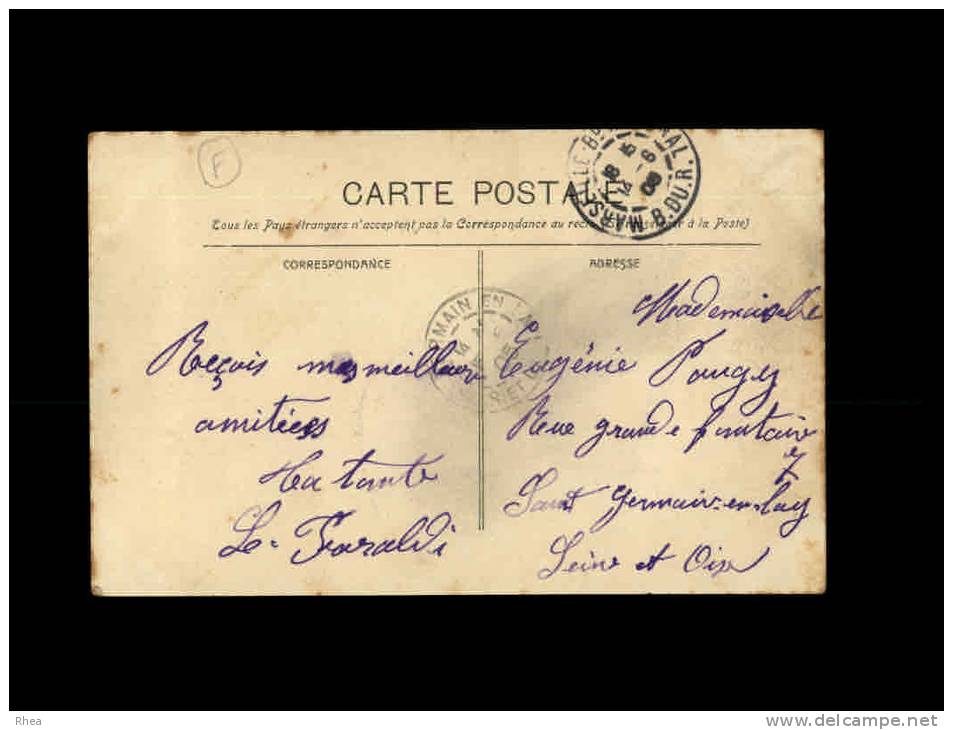 F
CARTE POSTALE
Tous les Pays étrangers n'acceptent pas la Correspondance au recto à la Poste)
CORRESPONDANCE
ADRESSE
MARSEILLE B. DU. R.
RMAIN EN LAY
Reçois mes meilleure
amitiées
Ta tante
Le. Faraldi
Mademoiselle
Eugénie Pougy
Rue grande fontaine
7
Saint Germain-en-lay
Seine et Oise
Rhea
www.delcampe.net